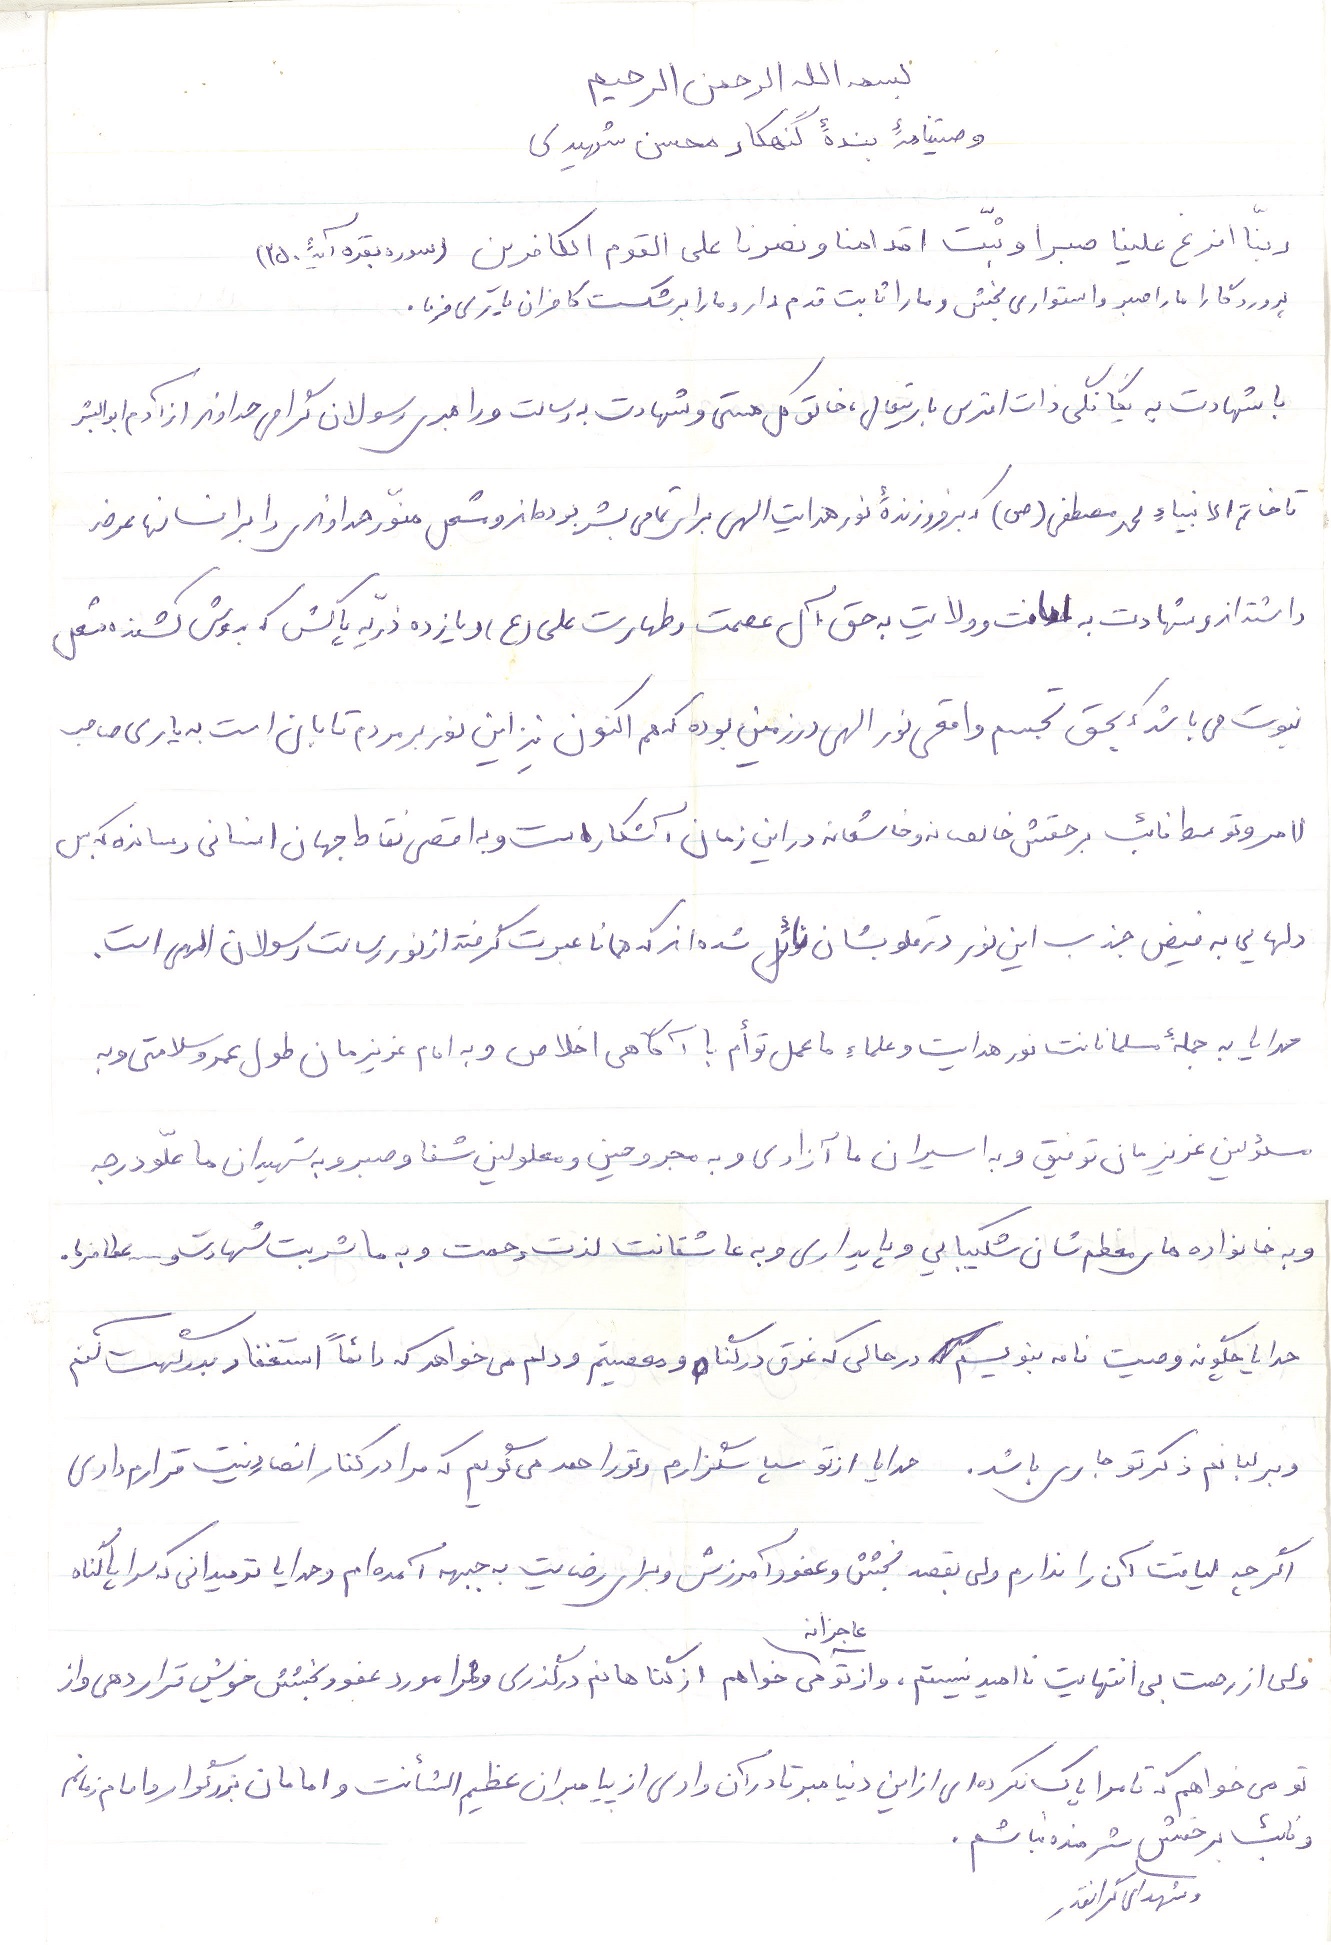 بسمه الله الرحمن الرحیم
وصیتنامۀ بندۀ گنهکار محسن شهیدی
ربنّا افرغ علینا صبرا و ثبّت اقدامنا ونصرنا علی القوم الکافرین (سوره بقره آیۀ ۲۵۰)
پروردگارا ما را صبر و استواری بخش و ما را ثابت قدم دار و ما را بر شکست کافران یاری فرما.
با شهادت به یگانگی ذات اقدس باریتعالی، خالق کل هستی و شهادت به رسالت و راهبری رسولان گرامی خداوند از آدم ابوالبشر
تا خاتم الانبیاء محمد مصطفی (ص) که برفروزندۀ نور هدایت الهی برای تمامی بشر بوده‌اند و مشعل منوّر خداوندی را بر انسانها عرضه
داشته‌اند و شهادت به امامت و ولایت به حق آل عصمت و طهارت علی (ع) و یازده ذرّیه پاکش که بدوش کشنده مشعل
نبوت می باشد که بحق تجسم واقعی نور الهی در زمین بوده که هم اکنون نیز این نور بر مردم تابان است به یاری صاحب
الامر و توسط نائب بر حقش خالصانه و خاشعانه در این زمان آشکار است و به اقصی نقاط جهان انسانی رسانده که بس
دلهایی به فیض جذب این نور در قلوبشان نائل شده‌اند که همانا عبرت گرفته از نور رسالت رسولان الهی است.
خدایا به جملۀ مسلمانانت نور هدایت و علماء ما عمل توأم با آگاهی اخلاص و به امام عزیزمان طول عمر و سلامتی و به
مسئولین عزیزمان توفیق و به اسیران ما آزادی و به مجروحین و معلولین شفا و صبر و به شهیدان ما علّو درجه
و به خانواده های معظم شان شکیبایی و پایداری و به عاشقانت لذت رحمت و به ما شربت شهادت عطا فرما.
خدایا چگونه وصیت نامه بنویسم در حالی که غرق در گناه و معصیتم و دلم می خواهد که دائماً استغفار بدرگهت کنم
و بر لبانم ذکر تو جاری باشد. خدایا از تو سپاسگزارم و تو را حمد می گویم که مرا در کنار انصار دینت قرارم دادی
اگر چه لیاقت آن را ندارم ولی بقصد بخشش و عفو و آمرزش و برای رضایت به جبهه آمده‌ام و خدایا تو میدانی که سراپا گناه
ولی از رحمت بی انتهایت ناامید نیستم، و از تو عاجزانه می خواهم از گناهانم درگذری و مرا مورد عفو و بخشش خویش قرار دهی و از
تو می خواهم که تا مرا پاک نکرده‌ای از این دنیا مبر تا در آن وادی از پیامبران عظیم الشأنت و امامان بزرگوار و امام زمانم
و نائب بر حقش شرمنده نباشم.
و شهدای گرانقدر